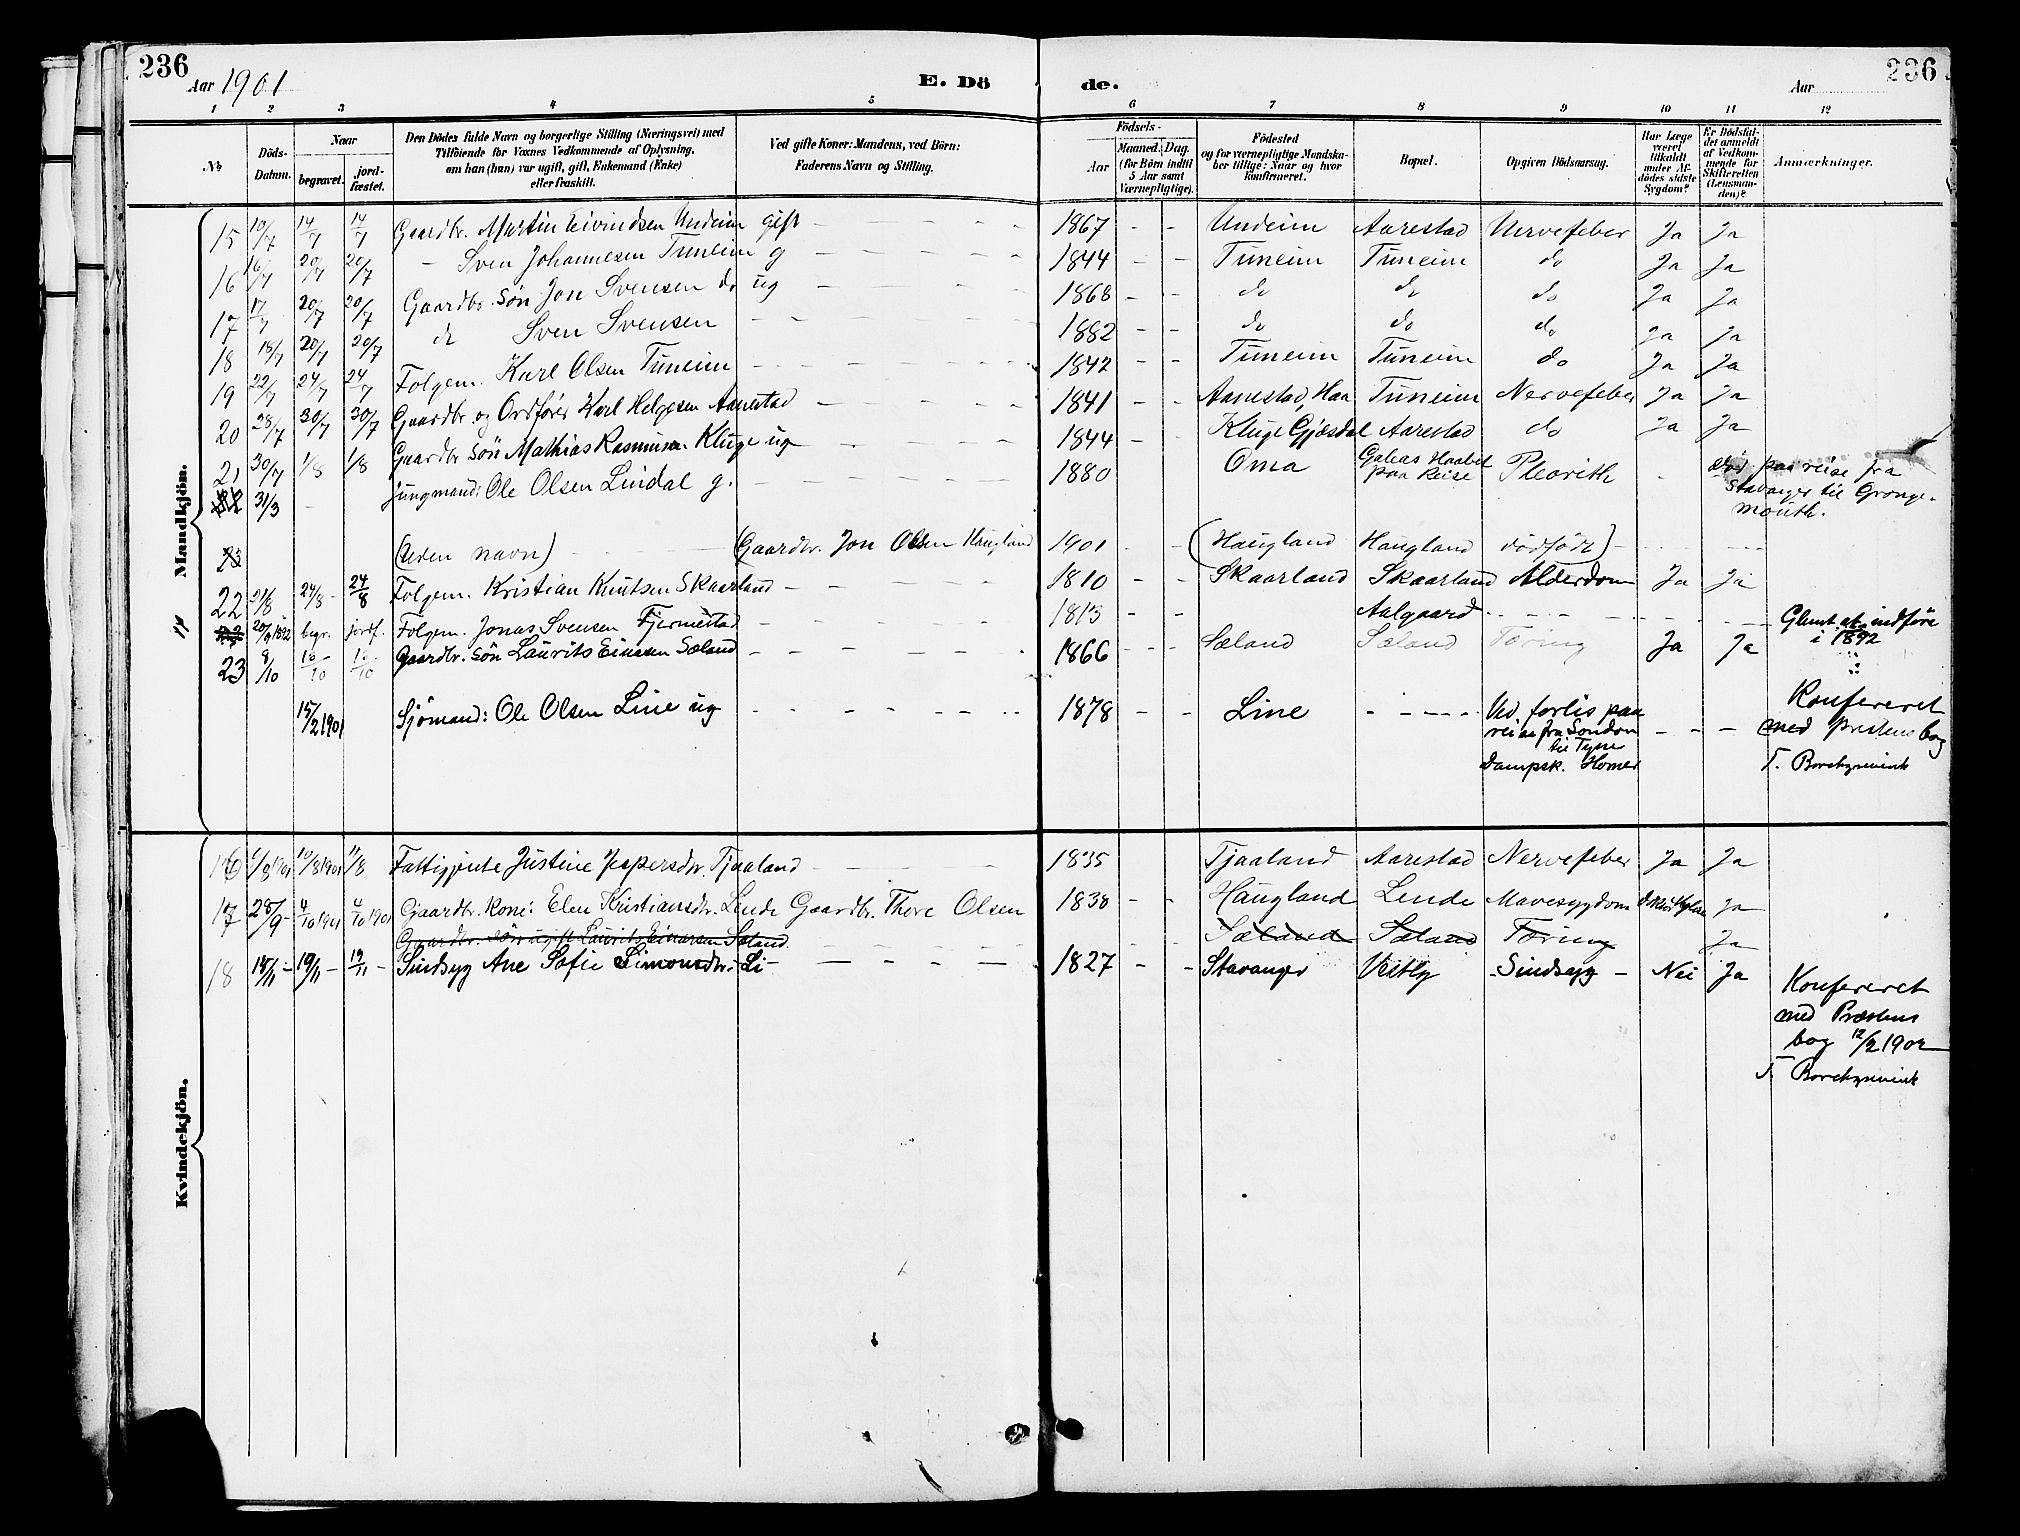 236
Aar 1901
E. Dö
de.
Aar
236
1 2 3 4 5 6 7 8 9 10 11 12
№
Döds-Datum.
Naar
begravet.
jord-fæstet.
Den Dödes fulde Navn og borgerlige Stilling (Næringsvei) med
Tilföiende for Voxnes Vedkommende af Oplysning,
om han (hun) var ugift, gift, Enkemand (Enke)
eller fraskilt.
Ved gifte Koner: Mandens, ved Börn:
Faderens Navn og Stilling.
Födsels-
Aar
Maaned. Dag.
(for Börn indtil
5 Aar samt
Værnepligtige).
Födested
og for værnepligtige Mandska-
ber tillige: Naar og hvor
konfirmeret.
Bopæl.
Opgiven Dödsaarsag.
Har Læge
været
tilkaldt
under Af-
dödes sidste
Sygdom?
Er Dödsfal-
det anmeldt
af Vedkom-
mende for
Skifteretten
(Lensman-
den)?
Anmærkninger.
Mandkjön.
15 10/7 14/7 14/7 Gaardbr. Martin Eivindsen Undeim gift - - - - 1867 - - Undeim Aarestad Nervefeber Ja Ja
16 16/7 20/7 20/7 - Sven Johannesen Tuneim g - - - - 1844 - - Tuneim Tuneim do Ja Ja
17 17/7 20/7 20/7 Gaardbr. søn Jon Svensen do ug - - - - 1868 - - do do do Ja Ja
18 18/7 20/7 20/7 do Sven Svensen - - - - 1882 - - do do do Ja Ja
19 22/7 24/7 24/7 Folgem. Karl Olsen Tuneim - - - - 1842 - - Tuneim Tuneim do Ja Ja
20 28/7 30/7 30/7 Gaardbr. og Ordfører Karl Helgesen Aarestad - - - - 1841 - - Aanestad, Haa Tuneim Nervefeber Ja Ja
21 30/7 1/8 1/8 Gaardbr søn Mathias Rasmusen Kluge ug - - - - 1844 - - Kluge Gjæsdal Aarestad do Ja Ja
31/3 - Jungmand: Ole Olsen Lindal g. - - - - 1880 Oma Galeas Haabet paa Reise Pleorith - død paa reise fra
Stavanger til Grange-
mouth.
(Uden navn) - - (Gaardbr. Jon Olsen Haugland 1901 - - (Haugland Haugland dødfødt) - - -
22 21/8 24/8 - 24/8 Folgem. Kristian Knutsen Skaarland - - - - 1810 - - Skaarland Skaarland Alderdom Ja Ja
20/9 1892 begr. jordf. Folgem. Jonas Svensen Fjermestad - - - - 1813 - - Aalgaard - - - - Glemt at indføre
i 1892
23 8/10 10/10 10/10 Gaardbr. søn Laurits Einarsen Sæland - - - - 1866 - - - Sæland Sæland Tæring Ja Ja
15/2 1901 Sjømand: Ole Olsen Line ug - - - - 1878 - - Line - - - - Ved forlis paa
reise fra London
til Tyne
Dampsk. Homer
- - -
Konfereret
med prestens bog
T. Borchgrevink
Kvindekjön.
16 6/8 1901 10/8 1901 11/8 Fattigjente Justine Jespersdr. Tjaaland - - - 1835 Tjaaland Aarestad Nervefeber Ja Ja
17 28/9 - 4/10 1901 4/10 1901 Gaardbr. kone: Elen Kristiansdr. Lende Gaardbr. Thore Olsen 1838 - - Haugland Lende Mavesygdom Ja
Gaardbr. søn ugift Laurits Einarsen Sæland - - - - Sæland Sæland Tæring Ja
18 14/11 - 19/11 - 19/11 - Sindsyg Ane Sofie Simonsdr. - Li - - - - - 1827 - - Stavanger Vestly Sindsyg - Nei Ja
Konfereret
med Præstens
bog 12/2 1902
T. Borchgrevink